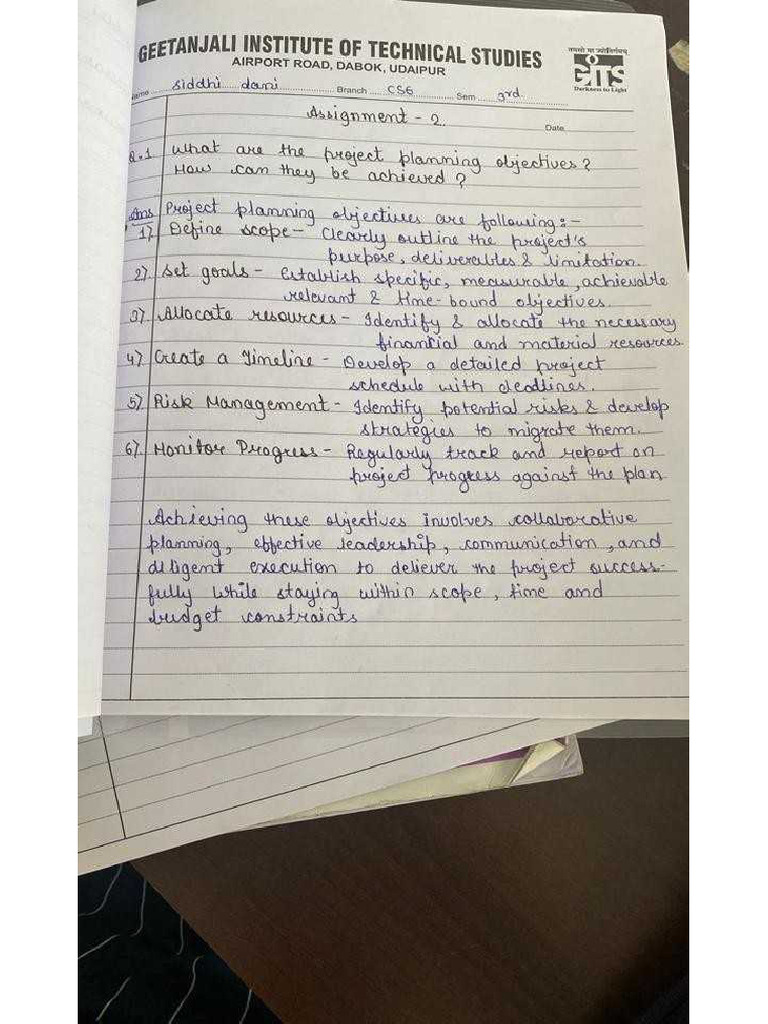 GEETANJALI INSTITUTE OF TECHNICAL STUDIES
AIRPORT ROAD, DABOK, UDAIPUR
तमसो मा ज्योतिर्गमय
GITS
Darkness to Light
Name siddhi dani Branch CS6 Sem 3rd
Assignment - 2.
Date
Q.1 What are the project planning objectives?
How can they be achieved?
Ans Project planning objectives are following:-
1) Define scope - Clearly outline the project's
purpose, deliverables & limitation.
2) Set goals - establish specific, measurable, achievable
relevant & time-bound objectives.
3) Allocate resources - Identify & allocate the necessary
financial and material resources.
4) Create a Timeline - Develop a detailed project
schedule with deadlines.
5) Risk Management - Identify potential risks & develop
strategies to migrate them.
6) Monitor Progress - Regularly track and report on
project progress against the plan
Achieving these objectives involves collaborative
planning, effective leadership, communication, and
diligent execution to deliever the project success-
fully while staying within scope, time and
budget constraints